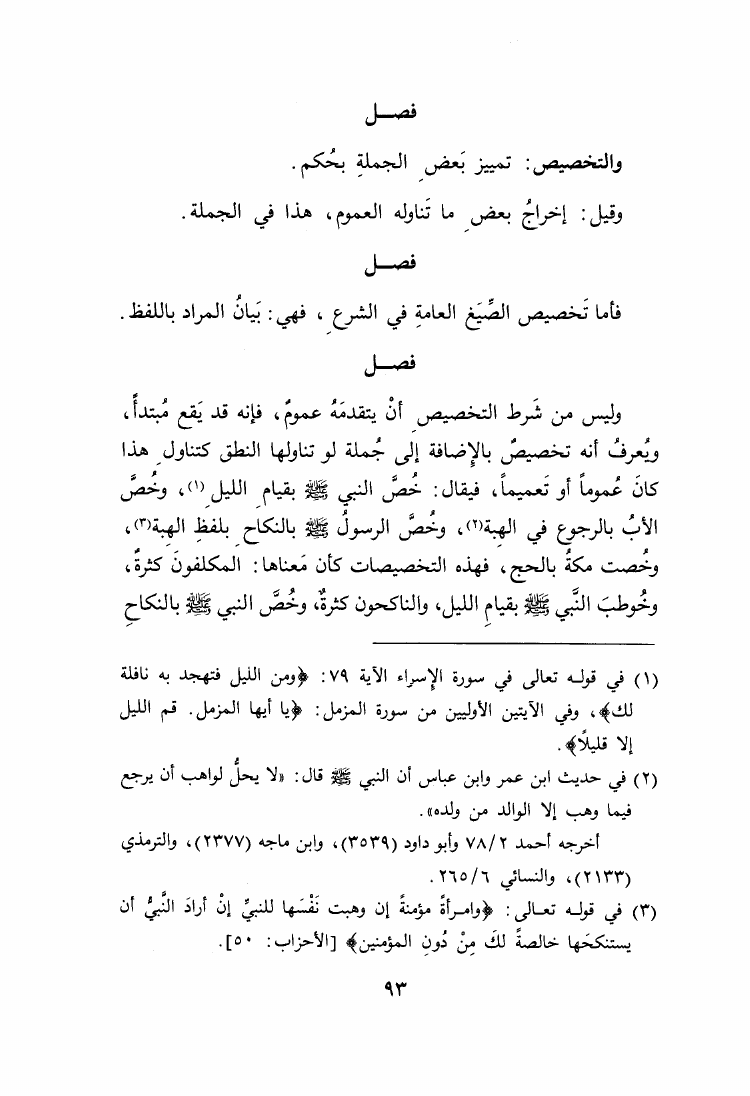 فصـل
والتخصيص: تمييز بَعضِ الجملةِ بحُكم.
وقيل: إخراجُ بعضِ ما تَناوله العموم، هذا في الجملة.
فصـل
فأما تَخصيص الصِّيَغ العامةِ في الشرعِ، فهي: بَيانُ المراد باللفظ.
فصـل
وليس من شَرط التخصيصِ أنْ يتقدمَهُ عمومٌ، فإنه قد يَقع مُبتدأً،
ويُعرفُ أنه تخصيصٌ بالإِضافة إلى جُملة لو تناولها النطق كتناولِ هذا
كانَ عُموماً أو تَعميماً، فيقال: خُصَّ النبي ﷺ بقيامِ الليلِ(١)، وخُصَّ
الأبُ بالرجوع في الهِبة(٢)، وخُصَّ الرسولُ ﷺ بالنكاحِ بلفظِ الهِبة(٣)،
وخُصت مكةُ بالحج، فهذه التخصيصات كأن مَعناها: المكلفونَ كثرةٌ،
وخُوطبَ النَّبي ﷺ بقيامِ الليل، والناكحون كثرةٌ، وخُصَّ النبي ﷺ بالنكاحِ
(١) في قولـه تعالى في سورة الإسراء الآية ٧٩: ﴿ومن الليل فتهجد به نافلة
لك﴾، وفي الآيتين الأوليين من سورة المزمل: ﴿يا أيها المزمل. قم الليل
إلا قليلًا﴾.
(٢) في حديث ابن عمر وابن عباس أن النبي ﷺ قال: «لا يحلُّ لواهب أن يرجع
فيما وهب إلا الوالد من ولده».
أخرجه أحمد ٧٨/٢ وأبو داود (٣٥٣٩)، وابن ماجه (٢٣٧٧)، والترمذي
(٢١٣٣)، والنسائي ٢٦٥/٦.
(٣) في قولـه تعـالى: ﴿وامـرأةً مؤمنةً إن وهبت نَفْسَها للنبيِّ إنْ أرادَ النَّبيُّ أن
يستنكحَها خالصةً لكَ مِنْ دُونِ المؤمنين﴾ [الأحزاب: ٥٠].
٩٣